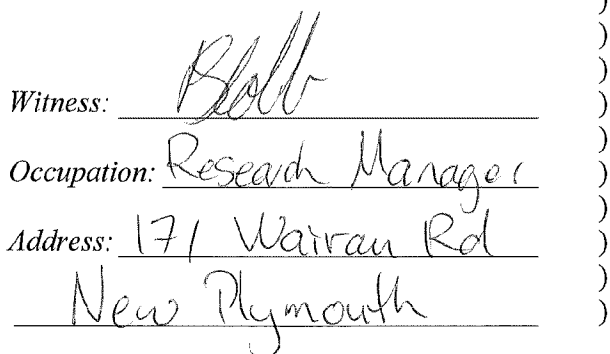 Witness:
Occupation: Research Manager
Address: 171 Wairau Rd
New Plymouth
)
)
)
)
)
)
)
)
)
)